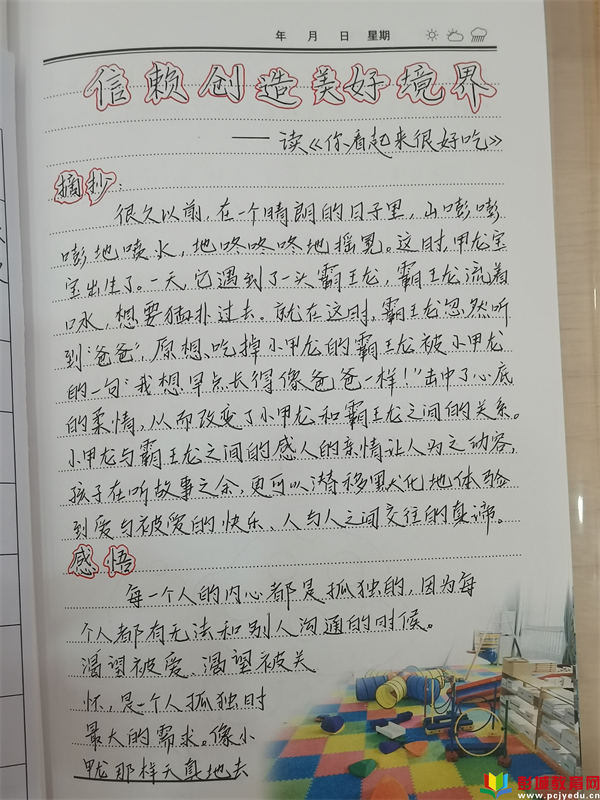 年 月 日 星期
信赖创造美好境界
——读《你看起来很好吃》
摘抄:
很久以前,在一个晴朗的日子里,山嘭嘭
嘭地喷水,地咚咚咚地摇晃。这时,甲龙宝
宝出生了。一天,它遇到了一头霸王龙,霸王龙流着
口水,想要猛扑过去。就在这时,霸王龙忽然听
到“爸爸”,原想吃掉小甲龙的霸王龙被小甲龙
的一句“我想早点长得像爸爸一样!”击中了心底
的柔情,从而改变了小甲龙和霸王龙之间的关系。
小甲龙与霸王龙之间的感人的亲情让人为之动容,
孩子在听故事之余,更可以潜移默化地体验
到爱与被爱的快乐、人与人之间交往的真谛。
感悟
每一个人的内心都是孤独的,因为每
个人都有无法和别人沟通的时候。
渴望被爱、渴望被关
怀,是一个人孤独时
最大的需求。像小
龙那样天真地去
彭城教育网
www.pcjyedu.cn